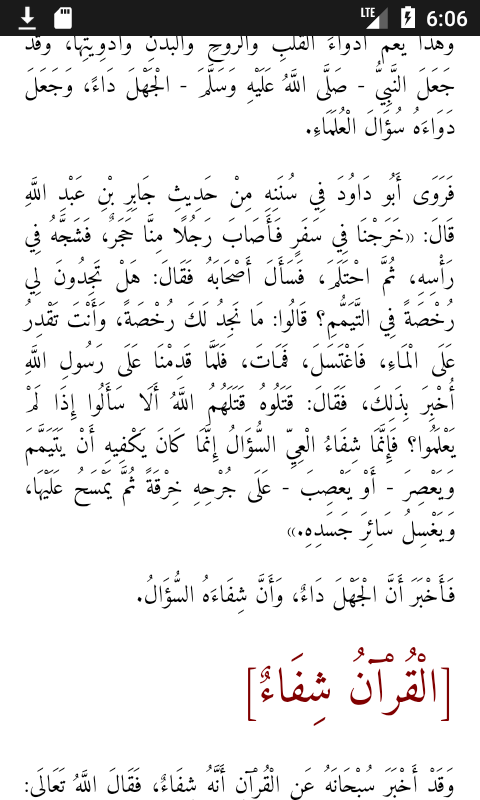 LTE 6:06
وَهَذَا يَعُمُّ أَدْوَاءَ الْقَلْبِ وَالرُّوحِ وَالْبَدَنِ وَأَدْوِيَتِهَا، وَقَدْ
جَعَلَ النَّبِيُّ - صَلَّى اللَّهُ عَلَيْهِ وَسَلَّمَ - الْجَهْلَ دَاءً، وَجَعَلَ
دَوَاءَهُ سُؤَالَ الْعُلَمَاءِ.
فَرَوَى أَبُو دَاوُدَ فِي سُنَنِهِ مِنْ حَدِيثِ جَابِرِ بْنِ عَبْدِ اللَّهِ
قَالَ: «خَرَجْنَا فِي سَفَرٍ فَأَصَابَ رَجُلًا مِنَّا حَجَرٌ، فَشَجَّهُ فِي
رَأْسِهِ، ثُمَّ احْتَلَمَ، فَسَأَلَ أَصْحَابَهُ فَقَالَ: هَلْ تَجِدُونَ لِي
رُخْصَةً فِي التَّيَمُّمِ؟ قَالُوا: مَا نَجِدُ لَكَ رُخْصَةً، وَأَنْتَ تَقْدِرُ
عَلَى الْمَاءِ، فَاغْتَسَلَ، فَمَاتَ، فَلَمَّا قَدِمْنَا عَلَى رَسُولِ اللَّهِ
أُخْبِرَ بِذَلِكَ، فَقَالَ: قَتَلُوهُ قَتَلَهُمُ اللَّهُ أَلَا سَأَلُوا إِذَا لَمْ
يَعْلَمُوا؟ فَإِنَّمَا شِفَاءُ الْعِيِّ السُّؤَالُ إِنَّمَا كَانَ يَكْفِيهِ أَنْ يَتَيَمَّمَ
وَيَعْصِرَ - أَوْ يَعْصِبَ - عَلَى جُرْحِهِ خِرْقَةً ثُمَّ يَمْسَحُ عَلَيْهَا،
وَيَغْسِلُ سَائِرَ جَسَدِهِ.»
فَأَخْبَرَ أَنَّ الْجَهْلَ دَاءٌ، وَأَنَّ شِفَاءَهُ السُّؤَالُ.
[الْقُرْآنُ شِفَاءٌ]
وَقَدْ أَخْبَرَ سُبْحَانَهُ عَنِ الْقُرْآنِ أَنَّهُ شِفَاءٌ، فَقَالَ اللَّهُ تَعَالَى: